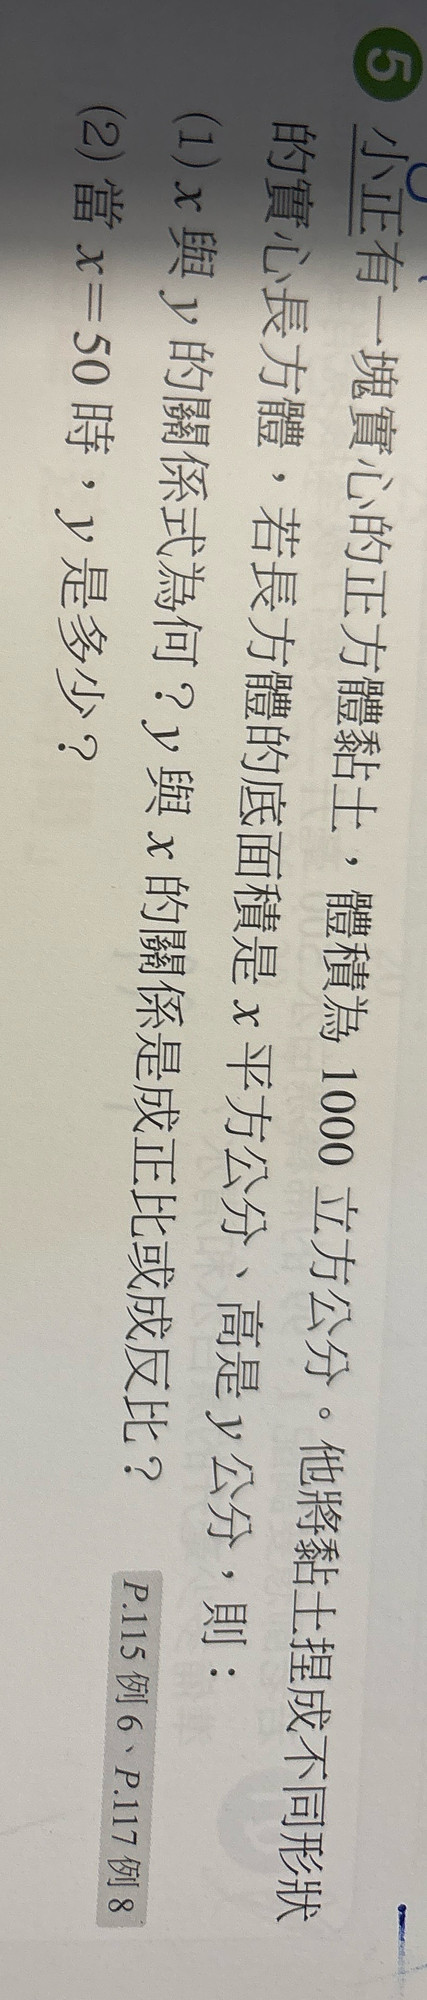 5 小正有一塊實心的正方體黏土,體積為 1000 立方公分。他將黏土捏成不同形狀
的實心長方體,若長方體的底面積是 x 平方公分、高是 y 公分,則:
(1) x 與 y 的關係式為何?y 與 x 的關係是成正比或成反比?
(2) 當 x=50 時,y 是多少?
P.115 例 6、P.117 例 8